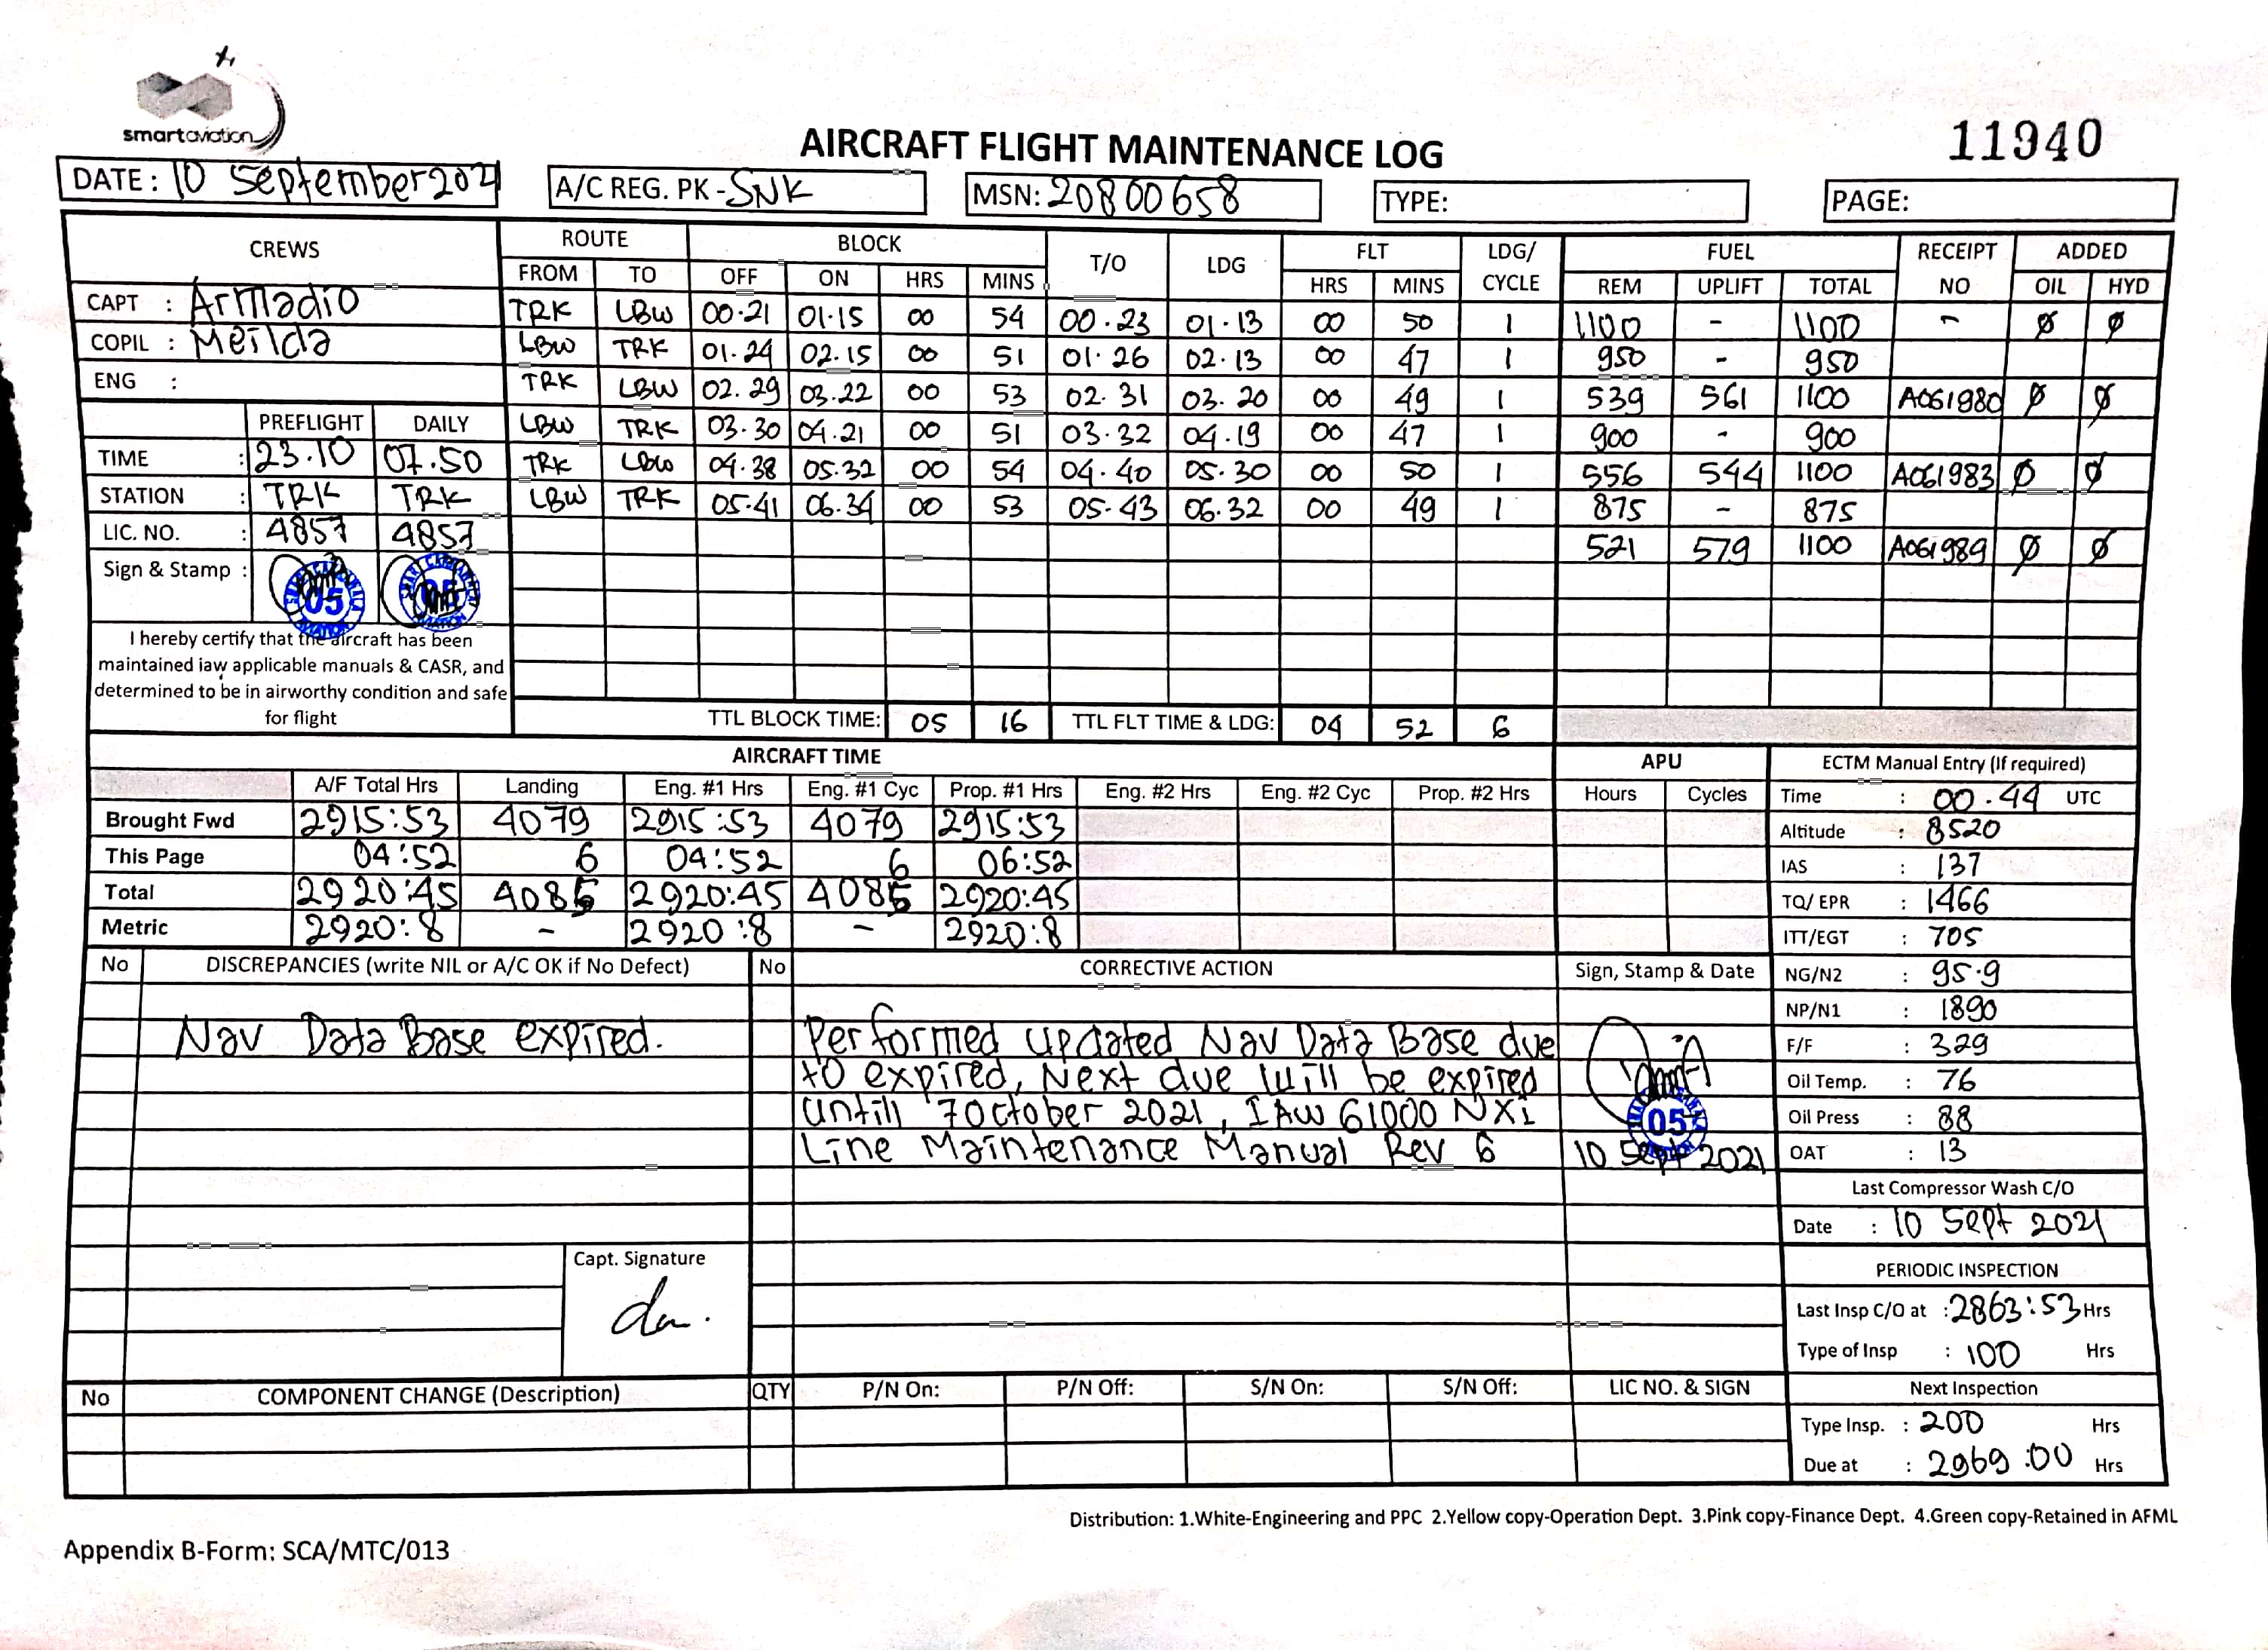 smartaviation
AIRCRAFT FLIGHT MAINTENANCE LOG
11940
DATE: 10 September 2021 A/C REG. PK - SNK MSN: 20800658 TYPE: PAGE:
CREWS ROUTE BLOCK T/O LDG FLT LDG/ CYCLE FUEL RECEIPT NO ADDED
FROM TO OFF ON HRS MINS HRS MINS REM UPLIFT TOTAL OIL HYD
CAPT : Armadio TRK LBW 00.21 01.15 00 54 00.23 01.13 00 50 1 1100 - 1100 - Ø Ø
COPIL : Meilda LBW TRK 01.24 02.15 00 51 01.26 02.13 00 47 1 950 - 950
ENG : TRK LBW 02.29 03.22 00 53 02.31 03.20 00 49 1 539 561 1100 A061980 Ø Ø
PREFLIGHT DAILY LBW TRK 03.30 04.21 00 51 03.32 04.19 00 47 1 900 - 900
TIME : 23.10 07.50 TRK LBW 04.38 05.32 00 54 04.40 05.30 00 50 1 556 544 1100 A061983 Ø Ø
STATION : TRK TRK LBW TRK 05.41 06.34 00 53 05.43 06.32 00 49 1 875 - 875
LIC. NO. : 4857 4857 521 579 1100 A061989 Ø Ø
Sign & Stamp : 05 05
I hereby certify that the aircraft has been
maintained iaw applicable manuals & CASR, and
determined to be in airworthy condition and safe
for flight
TTL BLOCK TIME: 05 16 TTL FLT TIME & LDG: 04 52 6
AIRCRAFT TIME APU ECTM Manual Entry (If required)
A/F Total Hrs Landing Eng. #1 Hrs Eng. #1 Cyc Prop. #1 Hrs Eng. #2 Hrs Eng. #2 Cyc Prop. #2 Hrs Hours Cycles Time : 00.44 UTC
Brought Fwd 2915:53 4079 2915:53 4079 2915:53 Altitude : 8520
This Page 04:52 6 04:52 6 06:52 IAS : 137
Total 2920:45 4085 2920:45 4085 2920:45 TQ/ EPR : 1466
Metric 2920:8 - 2920:8 - 2920:8 ITT/EGT : 705
No DISCREPANCIES (write NIL or A/C OK if No Defect) No CORRECTIVE ACTION Sign, Stamp & Date NG/N2 : 95.9
NP/N1 : 1890
Nav Data Base expired. Performed updated Nav Data Base due F/F : 329
to expired, Next due will be expired Oil Temp. : 76
untill 7 October 2021, IAW G1000 NXi 05 Oil Press : 88
Line Maintenance Manual Rev 6 10 Sept 2021 OAT : 13
Last Compressor Wash C/O
Date : 10 Sept 2021
Capt. Signature
PERIODIC INSPECTION
Last Insp C/O at : 2863:53 Hrs
Type of Insp : 100 Hrs
No COMPONENT CHANGE (Description) QTY P/N On: P/N Off: S/N On: S/N Off: LIC NO. & SIGN Next Inspection
Type Insp. : 200 Hrs
Due at : 2969:00 Hrs
Distribution: 1.White-Engineering and PPC 2.Yellow copy-Operation Dept. 3.Pink copy-Finance Dept. 4.Green copy-Retained in AFML
Appendix B-Form: SCA/MTC/013